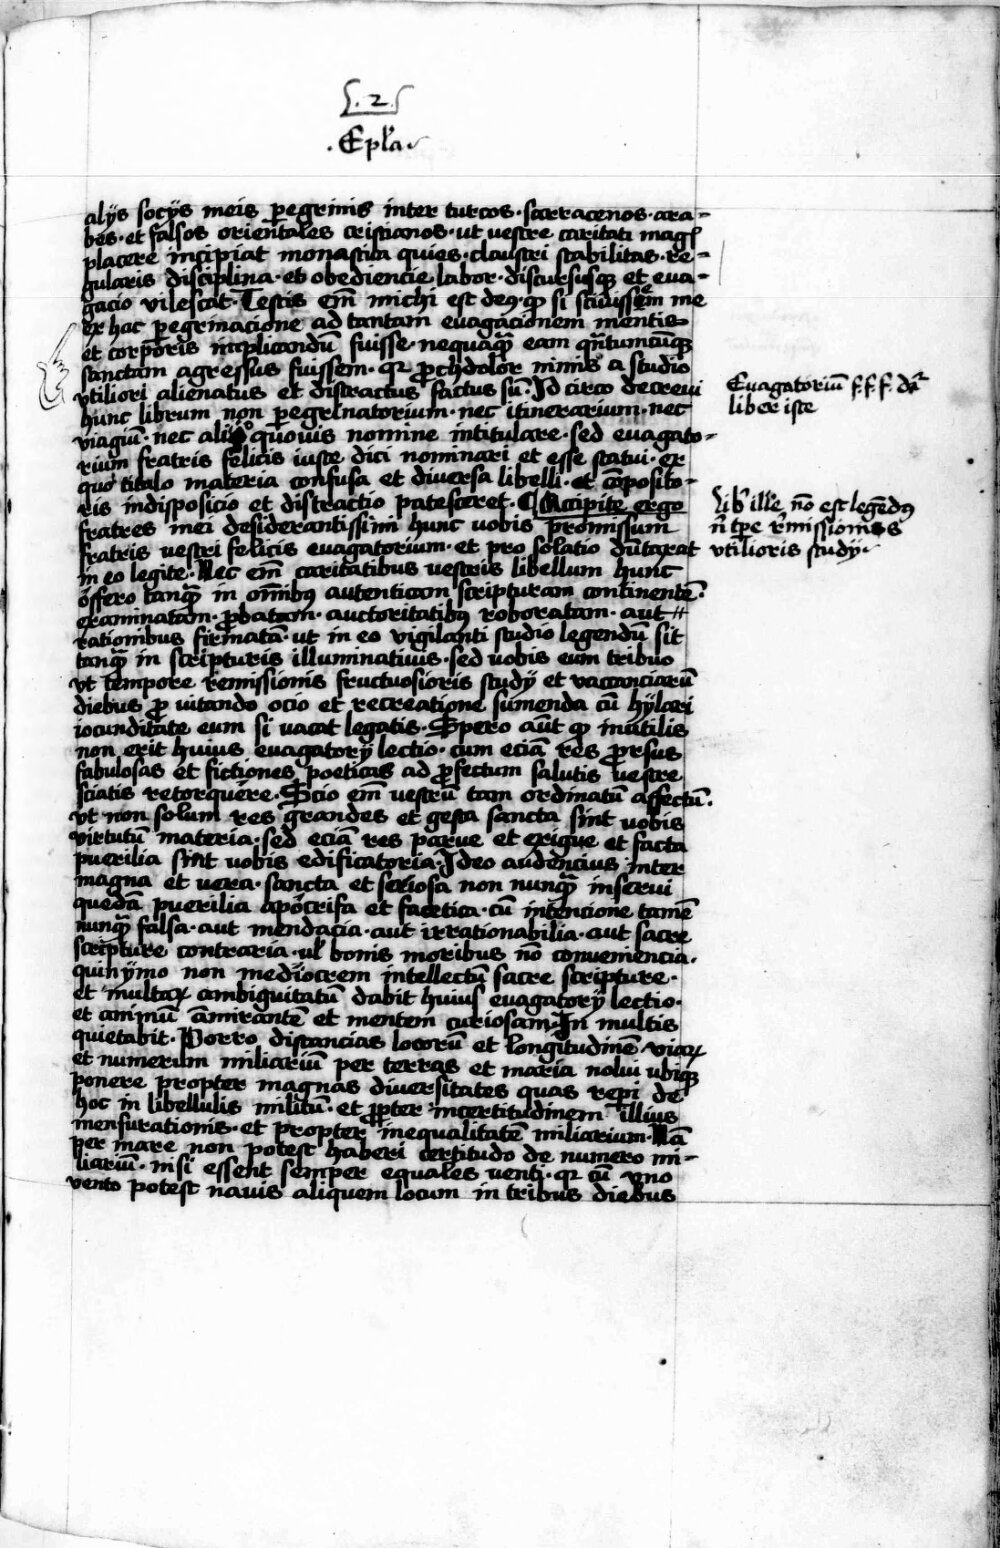 .2.
.Epl'a.
alijs socijs meis peregrinis inter turcos · sarracenos · ara-
bes · et falsos orientales cristianos · ut vestre caritati mag[
placere incipiat monastica quies · claustri stabilitas · re-
gularis disciplina · et obediencie labor · discursusq et eva-
gacio vilescat · Testis em̄ michi est deꝰ · qꝫ si scivissem me
ex hac peregrinacione ad tantam evagacionem mentis
et corporis implicandū fuisse · nequaq̄ȝ eam qn̄tumcūqꝫ
sanctam agressus fuissem · qꝛ prochdolor nimis a studio
vtiliori alienatus et distractus factus sū · Id circo decrevi
hunc librum non peregrinatorium · nec itinerarium · nec
viagiū · nec alio quovis nomine intitulare · sed evagato-
rium fratris felicis iuste dici nominari et esse statui · ex
quo titulo materia confusa et diversa libelli · et cōposito-
ris indisposicio et distractio patesceret · Accipite ergo
fratres mei desiderantissimi hunc vobis promissum
fratris vestri felicis evagatorium · et pro solatio dūtaxat
in eo legite · Nec em̄ caritatibus vestris libellum hunc
offero tanq̄ȝ in om̄ibꝰ autenticam scripturam continentē ·
examinatam · probatam · auctoritatibꝰ roboratam · aut
rationibus firmatā · ut in eo vigilanti studio legendū sit
tanq̄ȝ in scripturis illuminativis · sed vobis eum tribuo
vt tempore remissionis fructuosioris studij et vaccanciarū
diebus pro vitando ocio et recreatione sumenda cū hylari
iocunditate eum si vacat legatis · Spero aūt qꝫ inutilis
non erit huius evagatorij lectio · cum eciā res prorsus
fabulosas et fictiones poeticas ad profectum salutis vestre
sciatis retorquere · Scio em̄ vestrū tam ordinatū affectū ·
vt non solum res grandes et gesta sancta sint vobis
virtutū materia · sed eciā res parve et exigue et facta
puerilia sint vobis edificatoria · Ideo audencius inter
magna et vera · sancta et seriosa non nunq̄ȝ inserui
quedā puerilia apocrifa et facetica · cū intencione tamē
nunq̄ȝ falsa · aut mendacia · aut irrationabilia · aut sacre
scripture contraria · vl' bonis moribus nō conveniencia ·
quinymo non mediocrem intellectū sacre scripture ·
et multaꝝ ambiguitatū dabit huius evagatorij lectio ·
et animū āmirantē et mentem curiosam · In multis
quietabit · Porro distancias locorū et longitudinē viaꝝ
et numerum miliariū per terras et maria nolui ubiqꝫ
ponere propter magnas diversitates quas reperi de
hoc in libellulis militū · et propter incertitudinem illius
mensurationis · et propter inequalitatē miliarium · Nā
per mare non potest haberi certitudo de numero mi-
liariū · nisi essent semper equales venti · qꝛ cū vno
vento potest navis aliquem locum in tribus diebus
Evagatoriū f.f.f. dr̄
liber iste
lib' ille nō est legēdꝰ
n̄ tp̄e remissionis
vtilioris studij